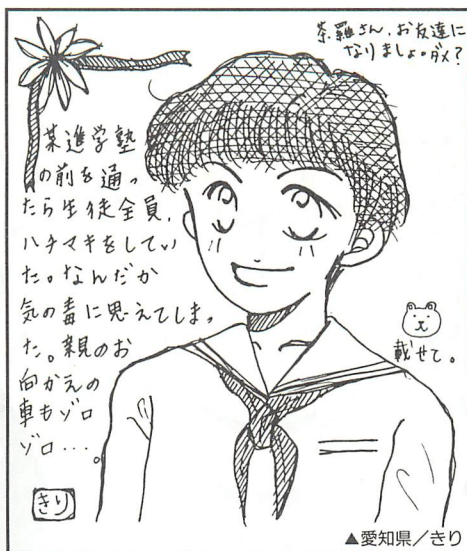 茶羅さん、お友達に
なりましょ。ダメ?
某進学塾
の前を通っ
たら生徒全員、
ハチマキをしてい
た。なんだか
気の毒に思えてしまっ
た。親のお
向かえの
車もゾロ
ゾロ…。
載せて。
きり
▲愛知県/きり